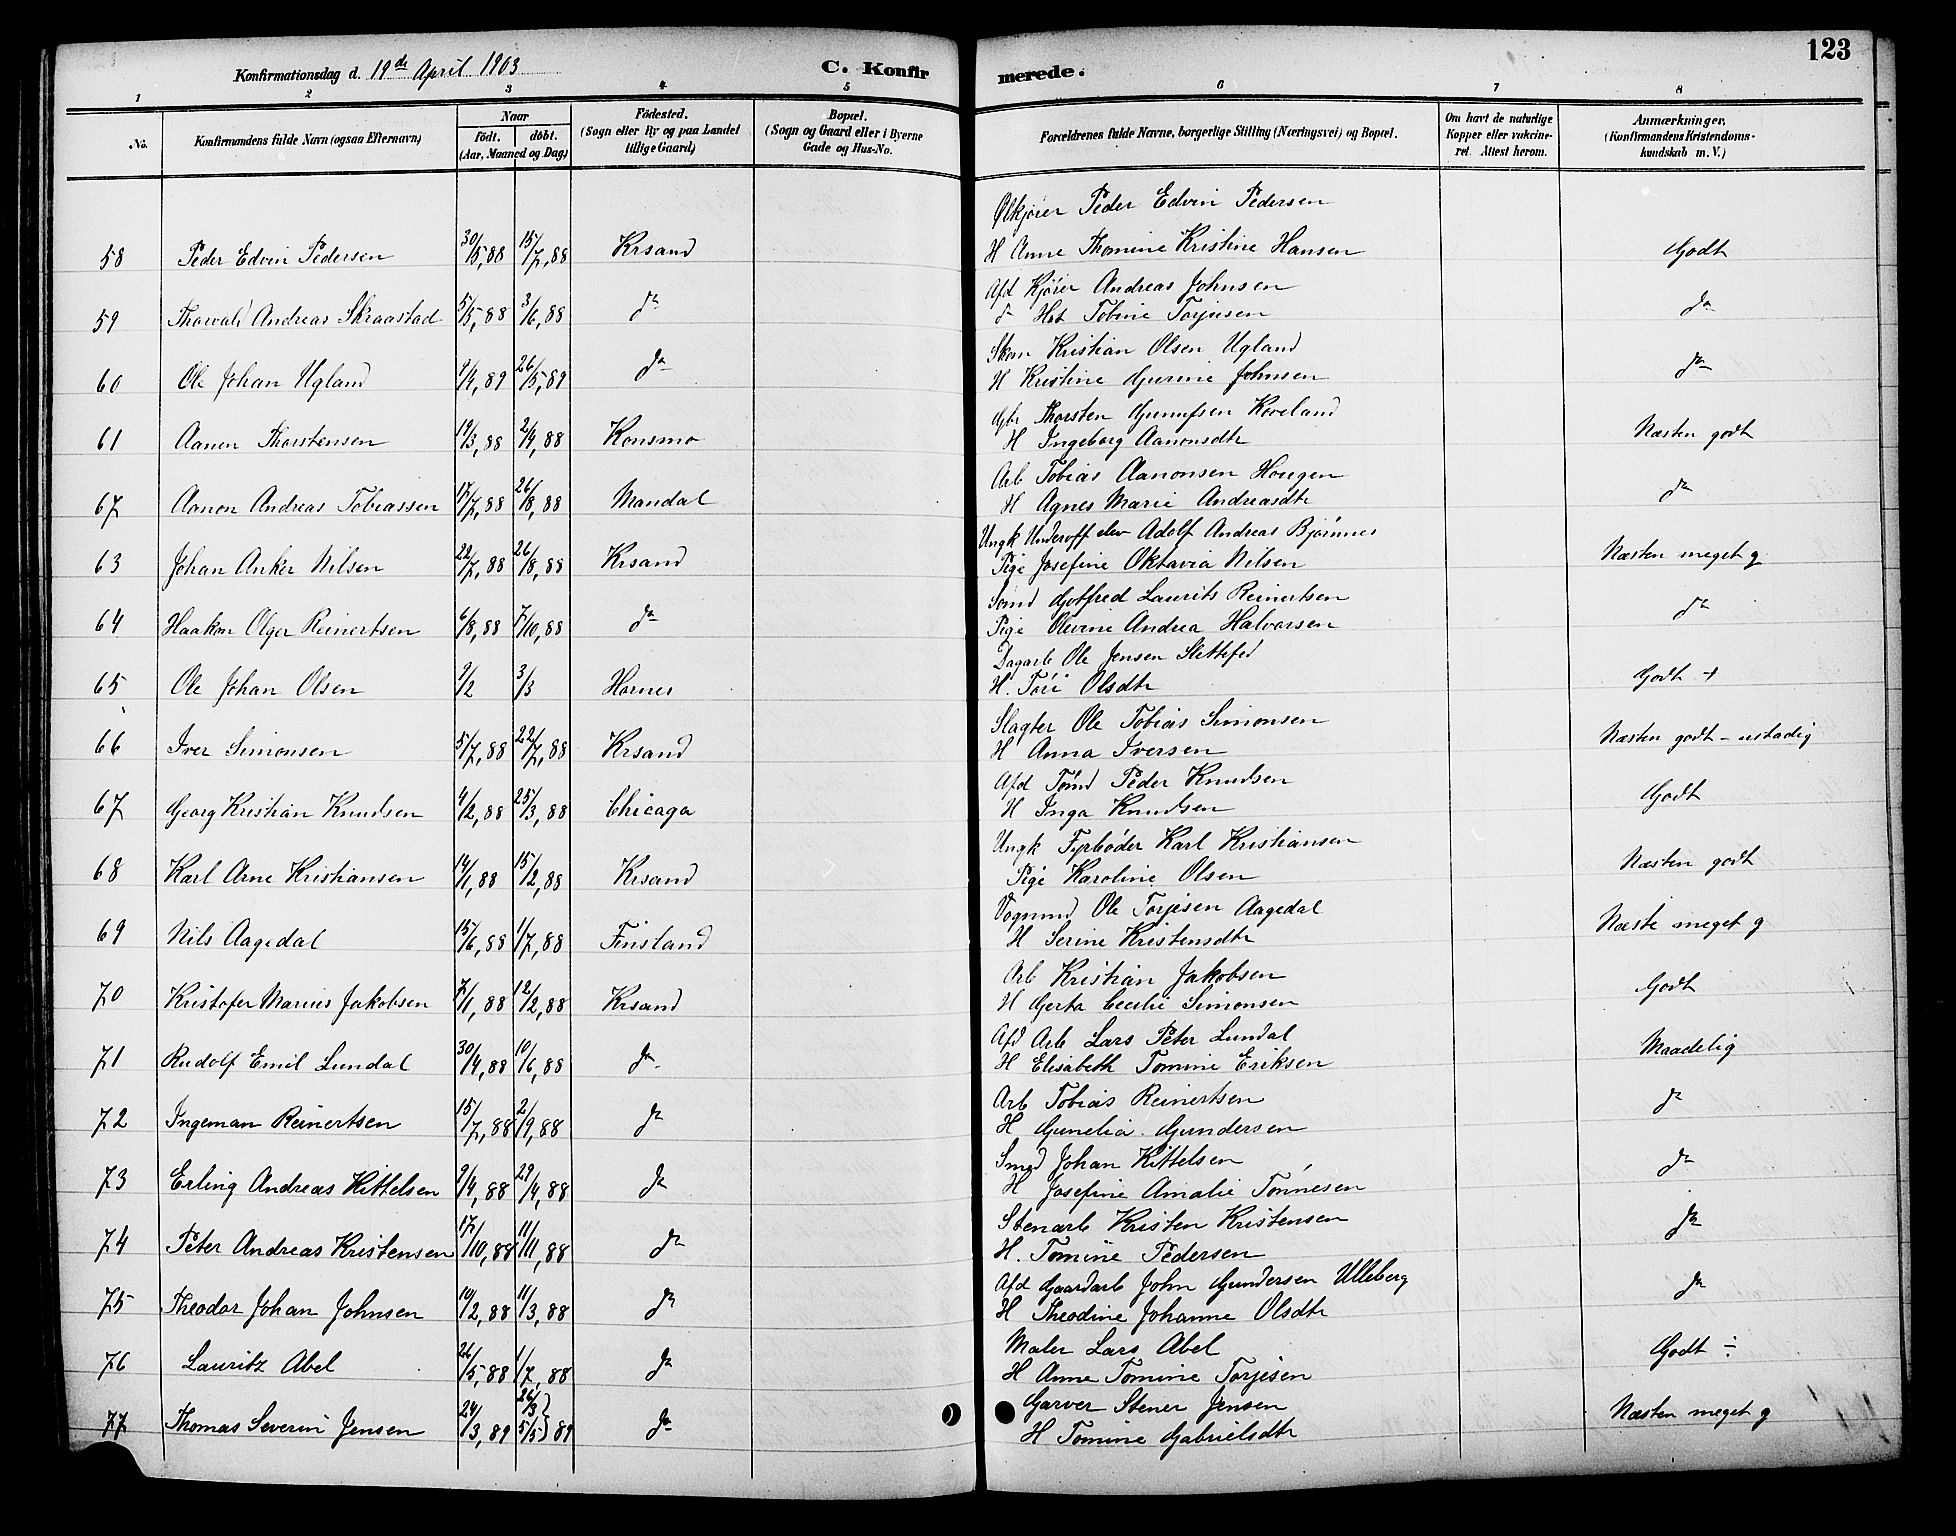 123
Konfirmationsdag d. 19de April 1903 C. Konfirmerede.
1 2 3 4 5 6 7 8
No. Konfirmandens fulde Navn (ogsaa Efternavn) Naar födt. döbt. (Aar, Maaned og Dag) Födested. (Sogn eller By og paa Landet tillige Gaard) Bopæl. (Sogn og Gaard eller i Byerne Gade og Hus-No. Forældrenes fulde Navne, borgerlige Stilling (Næringsvei) og Bopæl. Om havt de naturlige Kopper eller vakcineret. Attest herom. Anmærkninger, (Konfirmandens Kristendomskundskab m. V.)
Ølkjører Peder Edvin Pedersen
58 Peder Edvin Pedersen 30/5,88 15/7,88 Krsand H Anne Thomine Kristine Hansen Godt
Afd Kjører Andreas Johnsen
59 Thorvald Andreas Skraastad 5/5,88 3/6,88 do do Hst Tobine Torjusen do
Skom Kristian Olsen Ugland
60 Ole Johan Ugland 9/4,89 26/5,89 do H Kristine Gurine Johnsen do
Gbr Thorsten Gunufsen Koveland
61 Aanen Thorstensen 19/3,88 2/4,88 Konsmo H Ingeborg Aanonsdtr Næsten godt
Arb Tobias Aanonsen Hougen
67 Aanon Andreas Tobiassen 17/7,88 26/8,88 Mandal H Agnes Marie Andreasdtr do
Ungk Underoff elev Adolf Andreas Bjørnnes
63 Johan Anker Nilsen 22/7,88 26/8,88 Krsand Pige Josefine Oktavia Nilsen Næsten meget g
Sømd Gotfred Laurits Reinertsen
64 Haakon Olger Reinertsen 6/8,88 7/10,88 do Pige Olevine Andrea Halvorsen do
Dagarb Ole Jensen
65 Ole Johan Olsen 2/2 3/3 Hornes H. Olsdtr Godt +
Slagter Ole Tobias Simonsen
66 Iver Simonsen 5/7,88 22/7,88 Krsand H Anna Iversen Næsten godt - ustadig
Afd Tømd Peder Knudsen
67 Georg Kristian Knudsen 4/2,88 25/3,88 Chicago H Inga Knudsen Godt
Ungk Fyrbøder Karl Kristiansen
68 Karl Arne Kristiansen 14/1,88 15/2,88 Krsand Pige Karoline Olsen Næsten godt
Vognmd Ole Torjesen Aagedal
69 Nils Aagedal 15/6,88 1/7,88 Finsland H Serine Kristensdtr Næste meget g
Arb Kristian Jakobsen
70 Kristofer Marius Jakobsen 7/1,88 12/2,88 Krsand H Gerta Cecilie Simonsen Godt
Afd Arb Lars Peter Lundal
71 Rudolf Emil Lundal 30/4,88 10/6,88 do H Elisabeth Tomine Eriksen Maadelig
Arb Tobias Reinertsen
72 Ingeman Reinertsen 15/7,88 2/9,88 do H Gunelia Gundersen do
Smed Johan Kittelsen
73 Erling Andreas Kittelsen 9/4,88 29/4,88 do H Josefine Amalie Tönnesen do
Stenarb Kristen Kristensen
74 Peter Andreas Kristensen 17/10,88 11/11,88 do H. Tomine Pedersen do
Afd Gaardarb John Gundersen Ulleberg
75 Theodor Johan Johnsen 10/2,88 11/3,88 do H Theodine Johanne Olsdtr do
Maler Lars Abel
76 Lauritz Abel 26/5,88 1/7,88 do H Anne Tomine Torjesen Godt ÷
Garver Stener Jensen
77 Thomas Severin Jensen 24/3,89 26/3 5/5 } 89 do H Tomine Gabrielsdtr Næsten meget g